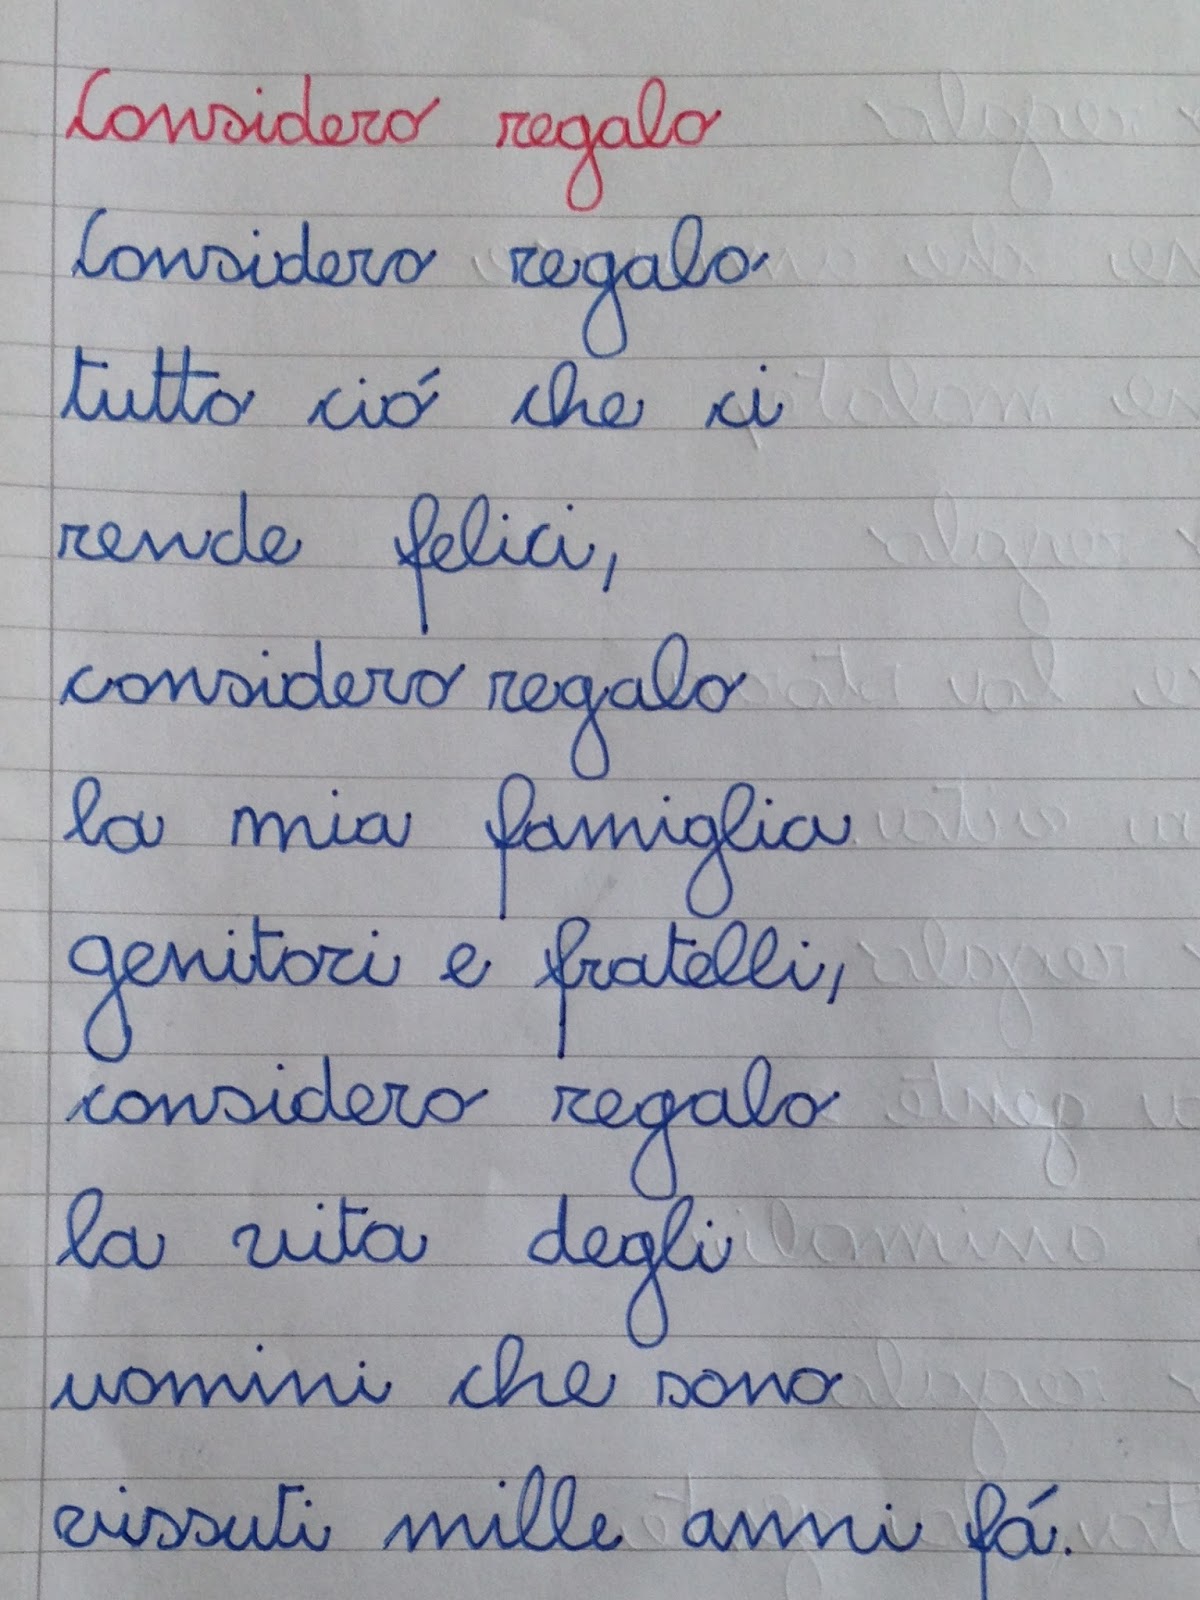 Considero regalo
Considero regalo
tutto ció che ci
rende felici,
considero regalo
la mia famiglia
genitori e fratelli,
considero regalo
la vita degli
uomini che sono
vissuti mille anni fá.